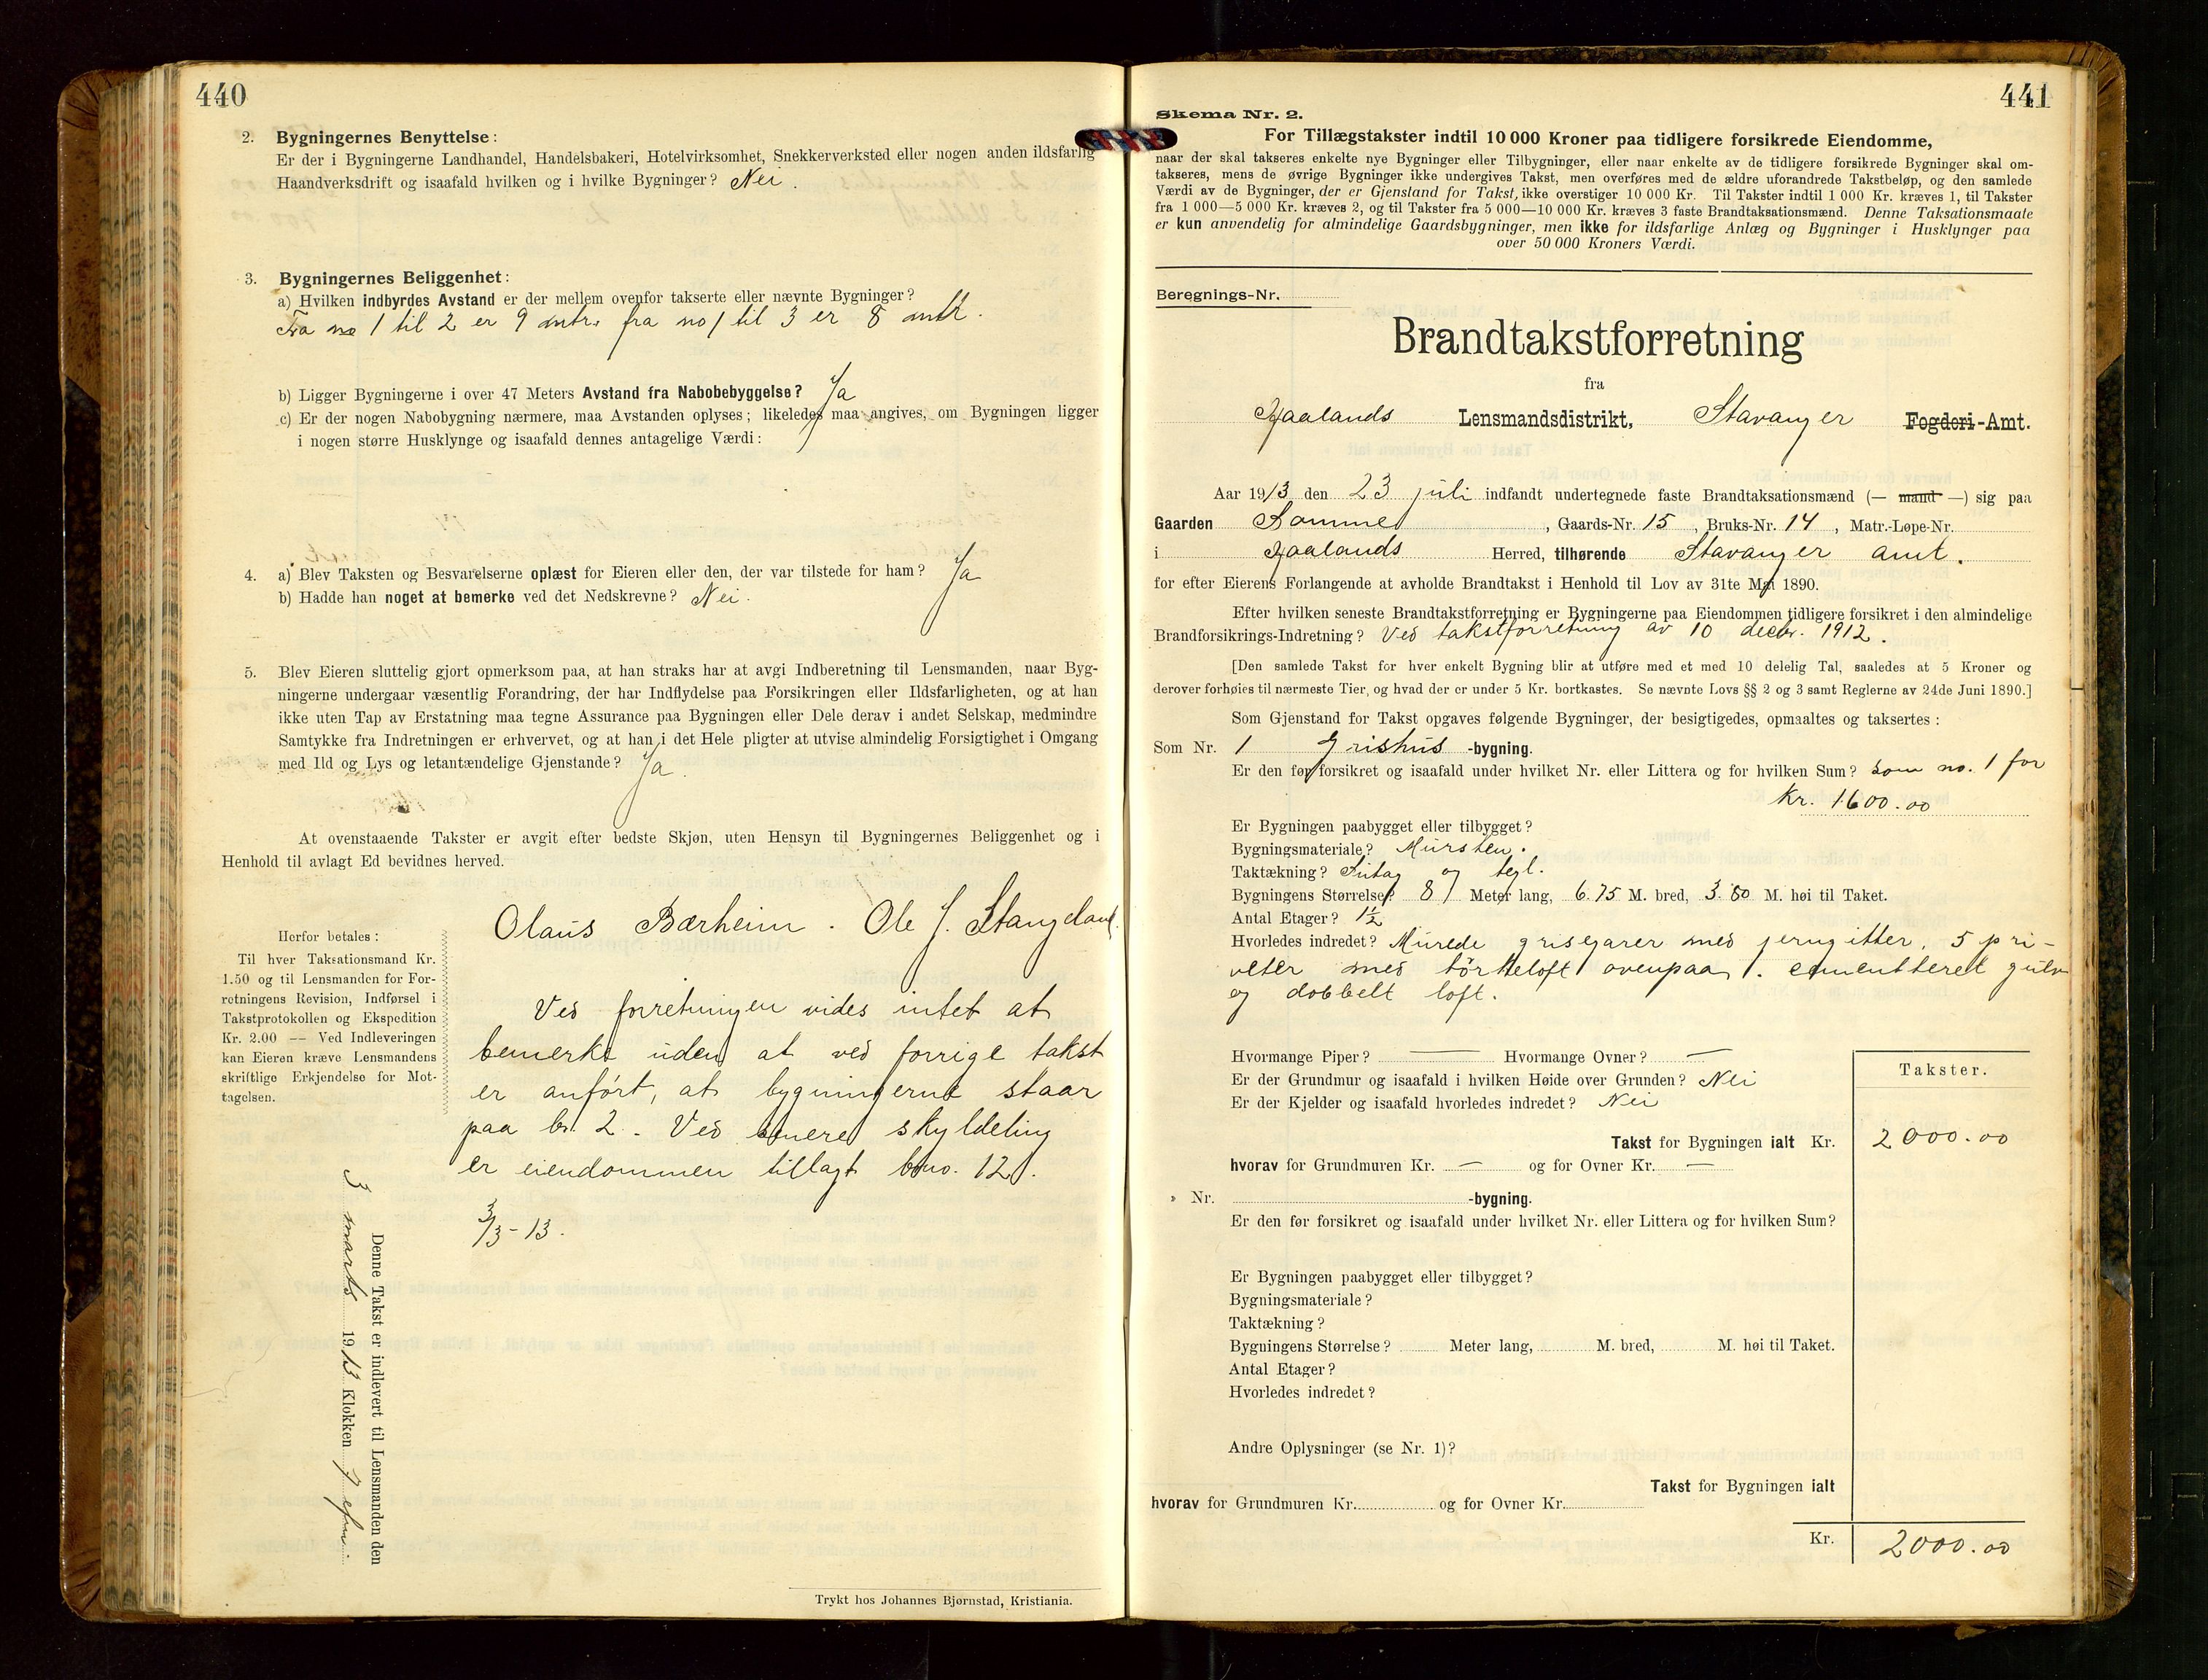 440
2. Bygningernes Benyttelse:
Er der i Bygningerne Landhandel, Handelsbakeri, Hotelvirksomhet, Snekkerverksted eller nogen anden ildsfarlig
Haandverksdrift og isaafald hvilken og i hvilke Bygninger? Nei.
3. Bygningernes Beliggenhet:
a) Hvilken indbyrdes Avstand er der mellem ovenfor takserte eller nævnte Bygninger?
Fra no 1 til 2 er 9 mtr. fra no 1 til 3 er 8 mtr.
b) Ligger Bygningerne i over 47 Meters Avstand fra Nabobebyggelse? Ja
c) Er der nogen Nabobygning nærmere, maa Avstanden oplyses; likeledes maa angives, om Bygningen ligger
i nogen større Husklynge og isaafald dennes antagelige Værdi:
4. a) Blev Taksten og Besvarelserne oplæst for Eieren eller den, der var tilstede for ham? Ja
b) Hadde han noget at bemerke ved det Nedskrevne? Nei.
5. Blev Eieren sluttelig gjort opmerksom paa, at han straks har at avgi Indberetning til Lensmanden, naar Byg-
ningerne undergaar væsentlig Forandring, der har Indflydelse paa Forsikringen eller Ildsfarligheten, og at han
ikke uten Tap av Erstatning maa tegne Assurance paa Bygningen eller Dele derav i andet Selskap, medmindre
Samtykke fra Indretningen er erhvervet, og at han i det Hele pligter at utvise almindelig Forsigtighet i Omgang
med Ild og Lys og letantændelige Gjenstande? Ja.
At ovenstaaende Takster er avgit efter bedste Skjøn, uten Hensyn til Bygningernes Beliggenhet og i
Henhold til avlagt Ed bevidnes herved.
Olaus Bærheim. Ole J. Stangeland.
Herfor betales:
Til hver Taksationsmand Kr.
1.50 og til Lensmanden for For-
retningens Revision, Indførsel i
Takstprotokollen og Ekspedition
Kr. 2.00 — Ved Indleveringen
kan Eieren kræve Lensmandens
skriftlige Erkjendelse for Mot-
tagelsen.
Ved forretningen vides intet at
bemerke uden at ved forrige takst
er anført, at bygningerne staar
paa br. 2. Ved senere skyldeling
er eiendommen tillagt bno. 12.
3/3-13.
Denne Takst er indlevert til Lensmanden den
3 marts 1913 Klokken 7 efm.
Trykt hos Johannes Bjørnstad, Kristiania.
441
Skema Nr. 2.
For Tillægstakster indtil 10 000 Kroner paa tidligere forsikrede Eiendomme,
naar der skal takseres enkelte nye Bygninger eller Tilbygninger, eller naar enkelte av de tidligere forsikrede Bygninger skal om-
takseres, mens de øvrige Bygninger ikke undergives Takst, men overføres med de ældre uforandrede Takstbeløp, og den samlede
Værdi av de Bygninger, der er Gjenstand for Takst, ikke overstiger 10 000 Kr. Til Takster indtil 1 000 Kr. kræves 1, til Takster
fra 1 000—5 000 Kr. kræves 2, og til Takster fra 5 000—10 000 Kr. kræves 3 faste Brandtaksationsmænd. Denne Taksationsmaate
er kun anvendelig for almindelige Gaardsbygninger, men ikke for ildsfarlige Anlæg og Bygninger i Husklynger paa
over 50 000 Kroners Værdi.
Beregnings-Nr.
Brandtakstforretning
fra
Haalands Lensmandsdistrikt, Stavanger Fogderi-Amt.
Aar 1913 den 23 juli indfandt undertegnede faste Brandtaksationsmænd (— mand —) sig paa
Gaarden Somme, Gaards-Nr. 15, Bruks-Nr. 14, Matr.-Løpe-Nr.
i Haalands Herred, tilhørende Stavanger amt.
for efter Eierens Forlangende at avholde Brandtakst i Henhold til Lov av 31te Mai 1890.
Efter hvilken seneste Brandtakstforretning er Bygningerne paa Eiendommen tidligere forsikret i den almindelige
Brandforsikrings-Indretning? Ved takstforretning av 10 decbr. 1912.
[Den samlede Takst for hver enkelt Bygning blir at utføre med et med 10 delelig Tal, saaledes at 5 Kroner og
derover forhøies til nærmeste Tier, og hvad der er under 5 Kr. bortkastes. Se nævnte Lovs §§ 2 og 3 samt Reglerne av 24de Juni 1890.]
Som Gjenstand for Takst opgaves følgende Bygninger, der besigtigedes, opmaaltes og taksertes:
Som Nr. 1 Grishus -bygning.
Er den før forsikret og isaafald under hvilket Nr. eller Littera og for hvilken Sum? Som no. 1 for
Kr. 1600.00
Er Bygningen paabygget eller tilbygget?
Bygningsmateriale? Mursten.
Taktækning? Sutag og tegl.
Bygningens Størrelse? 8 Meter lang, 6.75 M. bred, 3.80 M. høi til Taket.
Antal Etager? 1½
Hvorledes indredet? Murede grisegarer med jerngitter, 5 pri-
veter med tørkeloft ovenpaa. cementteret gulv
og dobbelt loft.
Hvormange Piper? — Hvormange Ovner? —
Er der Grundmur og isaafald i hvilken Høide over Grunden? Nei
Er der Kjelder og isaafald hvorledes indredet? Nei
Takster.
Takst for Bygningen ialt Kr. 2000.00
hvorav for Grundmuren Kr. — og for Ovner Kr. —
» Nr. -bygning.
Er den før forsikret og isaafald under hvilket Nr. eller Littera og for hvilken Sum?
Er Bygningen paabygget eller tilbygget?
Bygningsmateriale?
Taktækning?
Bygningens Størrelse? Meter lang, M. bred, M. høi til Taket.
Antal Etager?
Hvorledes indredet?
Andre Oplysninger (se Nr. 1)?
Takst for Bygningen ialt
hvorav for Grundmuren Kr. og for Ovner Kr.
Kr. 2000.00